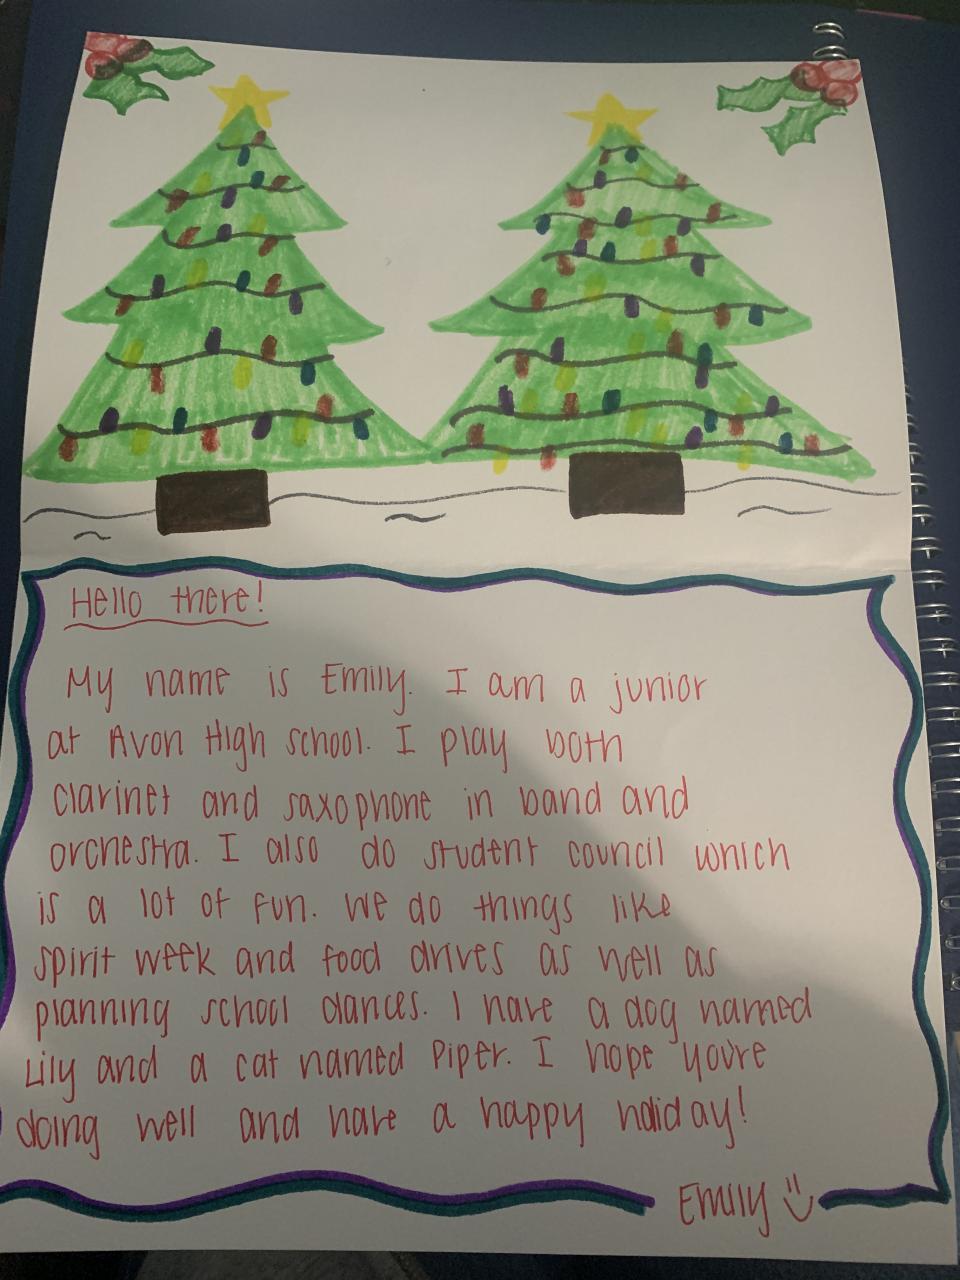 Hello there!
My name is Emily. I am a junior
at Avon High school. I play both
clarinet and saxophone in band and
orchestra. I also do student council which
is a lot of fun. We do things like
spirit week and food drives as well as
planning school dances. I have a dog named
Lily and a cat named Piper. I hope you're
doing well and have a happy holiday!
Emily